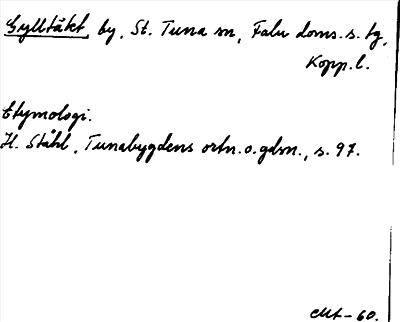 Gylltäkt, by, St. Tuna sn, Falu doms. s. tg,
Kopp. l.
Etymologi.
H. Ståhl, Tunabygdens ortn. o. gdsn., s. 97.
-60.